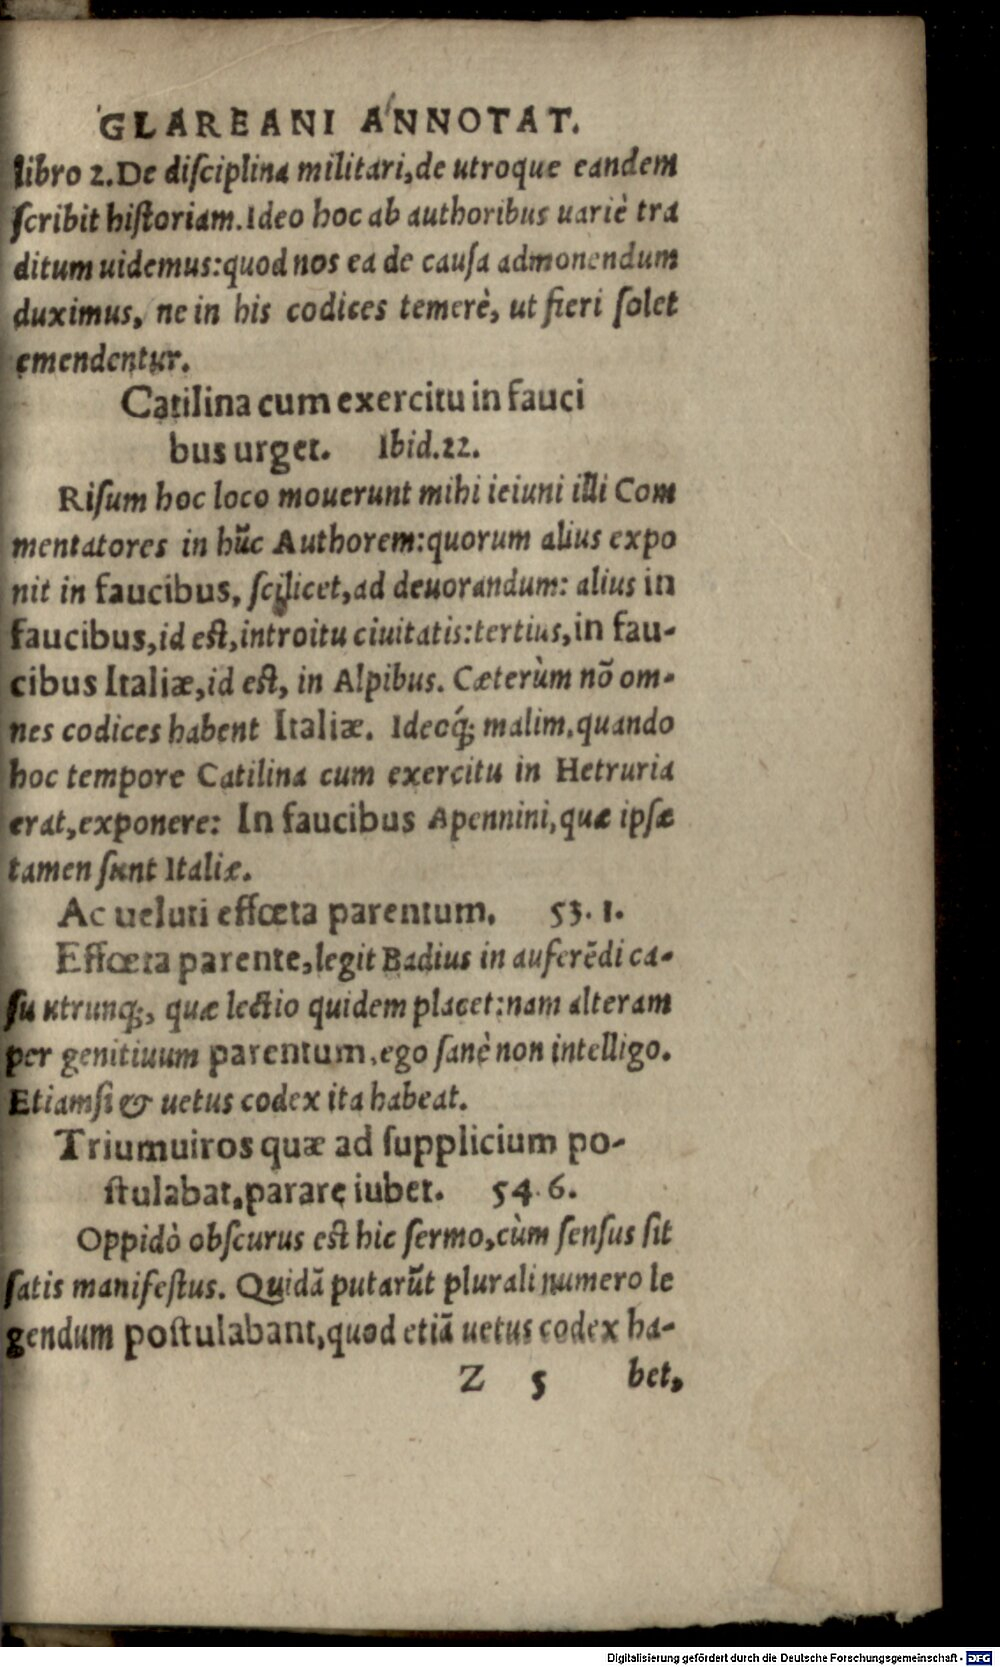 GLAREANI ANNOTAT.
libro 2. De disciplina militari, de utroque eandem
scribit historiam. Ideo hoc ab authoribus uariè tra
ditum uidemus: quod nos ea de causa admonendum
duximus, ne in his codices temerè, ut fieri solet
emendentur.
Catilina cum exercitu in fauci
bus urget. Ibid. 22.
Risum hoc loco mouerunt mihi ieiuni illi Com
mentatores in hũc Authorem: quorum alius expo
nit in faucibus, scilicet, ad deuorandum: alius in
faucibus, id est, introitu ciuitatis: tertius, in fau-
cibus Italiæ, id est, in Alpibus. Cæterùm nõ om-
nes codices habent Italiæ. Ideoq́; malim, quando
hoc tempore Catilina cum exercitu in Hetruria
erat, exponere: In faucibus Apennini, quæ ipsæ
tamen sunt Italiæ.
Ac ueluti effœta parentum. 53. 1.
Effœta parente, legit Badius in auferẽdi ca-
su utrunq;, quæ lectio quidem placet: nam alteram
per genitiuum parentum, ego sanè non intelligo.
Etiamsi & uetus codex ita habeat.
Triumuiros quæ ad supplicium po-
stulabat, parare iubet. 54. 6.
Oppidò obscurus est hic sermo, cùm sensus sit
satis manifestus. Quidã putarũt plurali numero le
gendum postulabant, quod etiã uetus codex ha-
Z 5 bet,
Digitalisierung gefördert durch die Deutsche Forschungsgemeinschaft - DFG